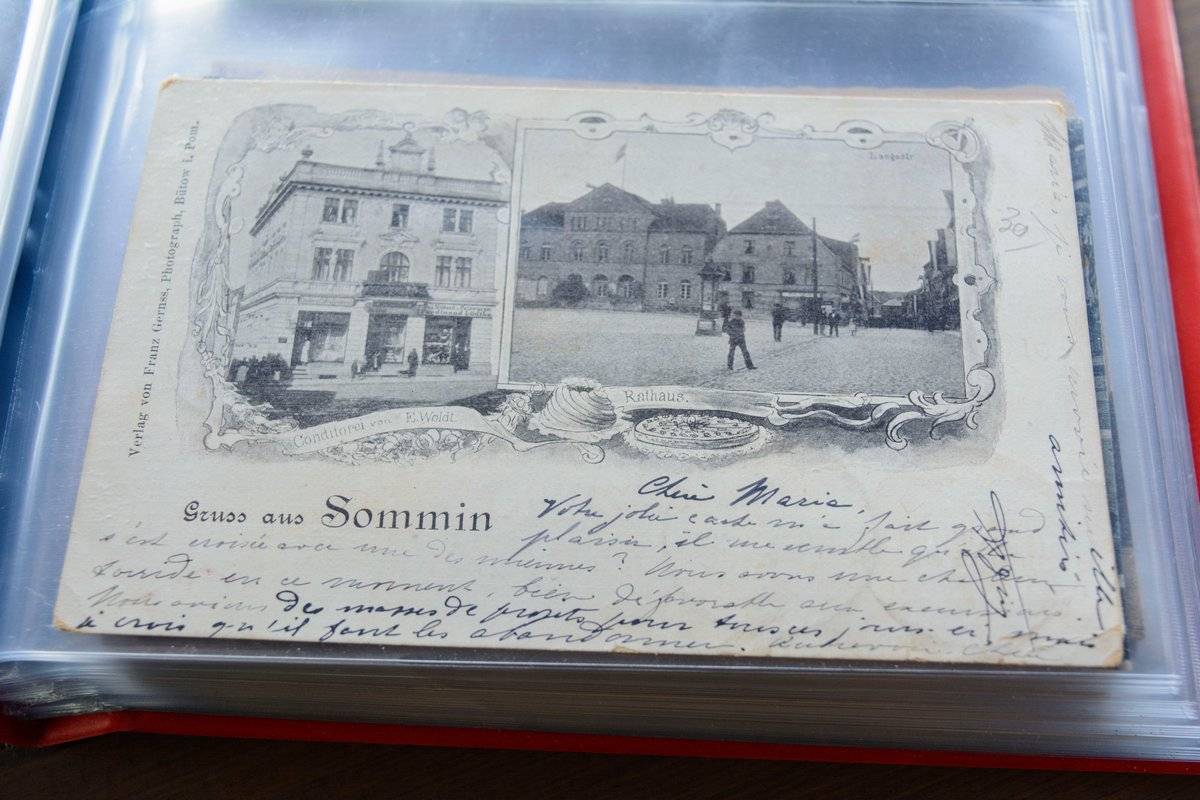 Verlag von Franz Gernss, Photograph, Bütow i. Pom.
Langestr.
Ferdinand Lüdtke
Conditorei von E. Woldt.
Rathaus.
30
Gruss aus Sommin
Chère Maria,
Votre jolie carte m'a fait grand
plaisir, il me semble qu'elle
s'est croisée avec une des miennes? Nous avons une chaleur
torride en ce moment, bien défavorable aux excursions
Nous avions des masses de projets pour tous ces jours ci, mais
je crois qu'il faut les abandonner. Au revoir chère
Maria, je vous
amitiés